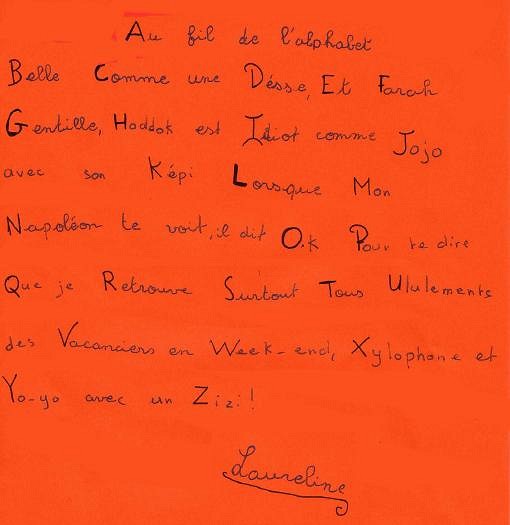 Au fil de l'alphabet
Belle Comme une Désse, Et Farah
Gentille, Haddok est Idiot comme Jojo
avec son Képi Lorsque Mon
Napoléon te voit, il dit O.K Pour te dire
Que je Retrouve Surtout Tous Ululements
des Vacanciers en Week-end, Xylophone et
Yo-yo avec un Zizi!
Laureline